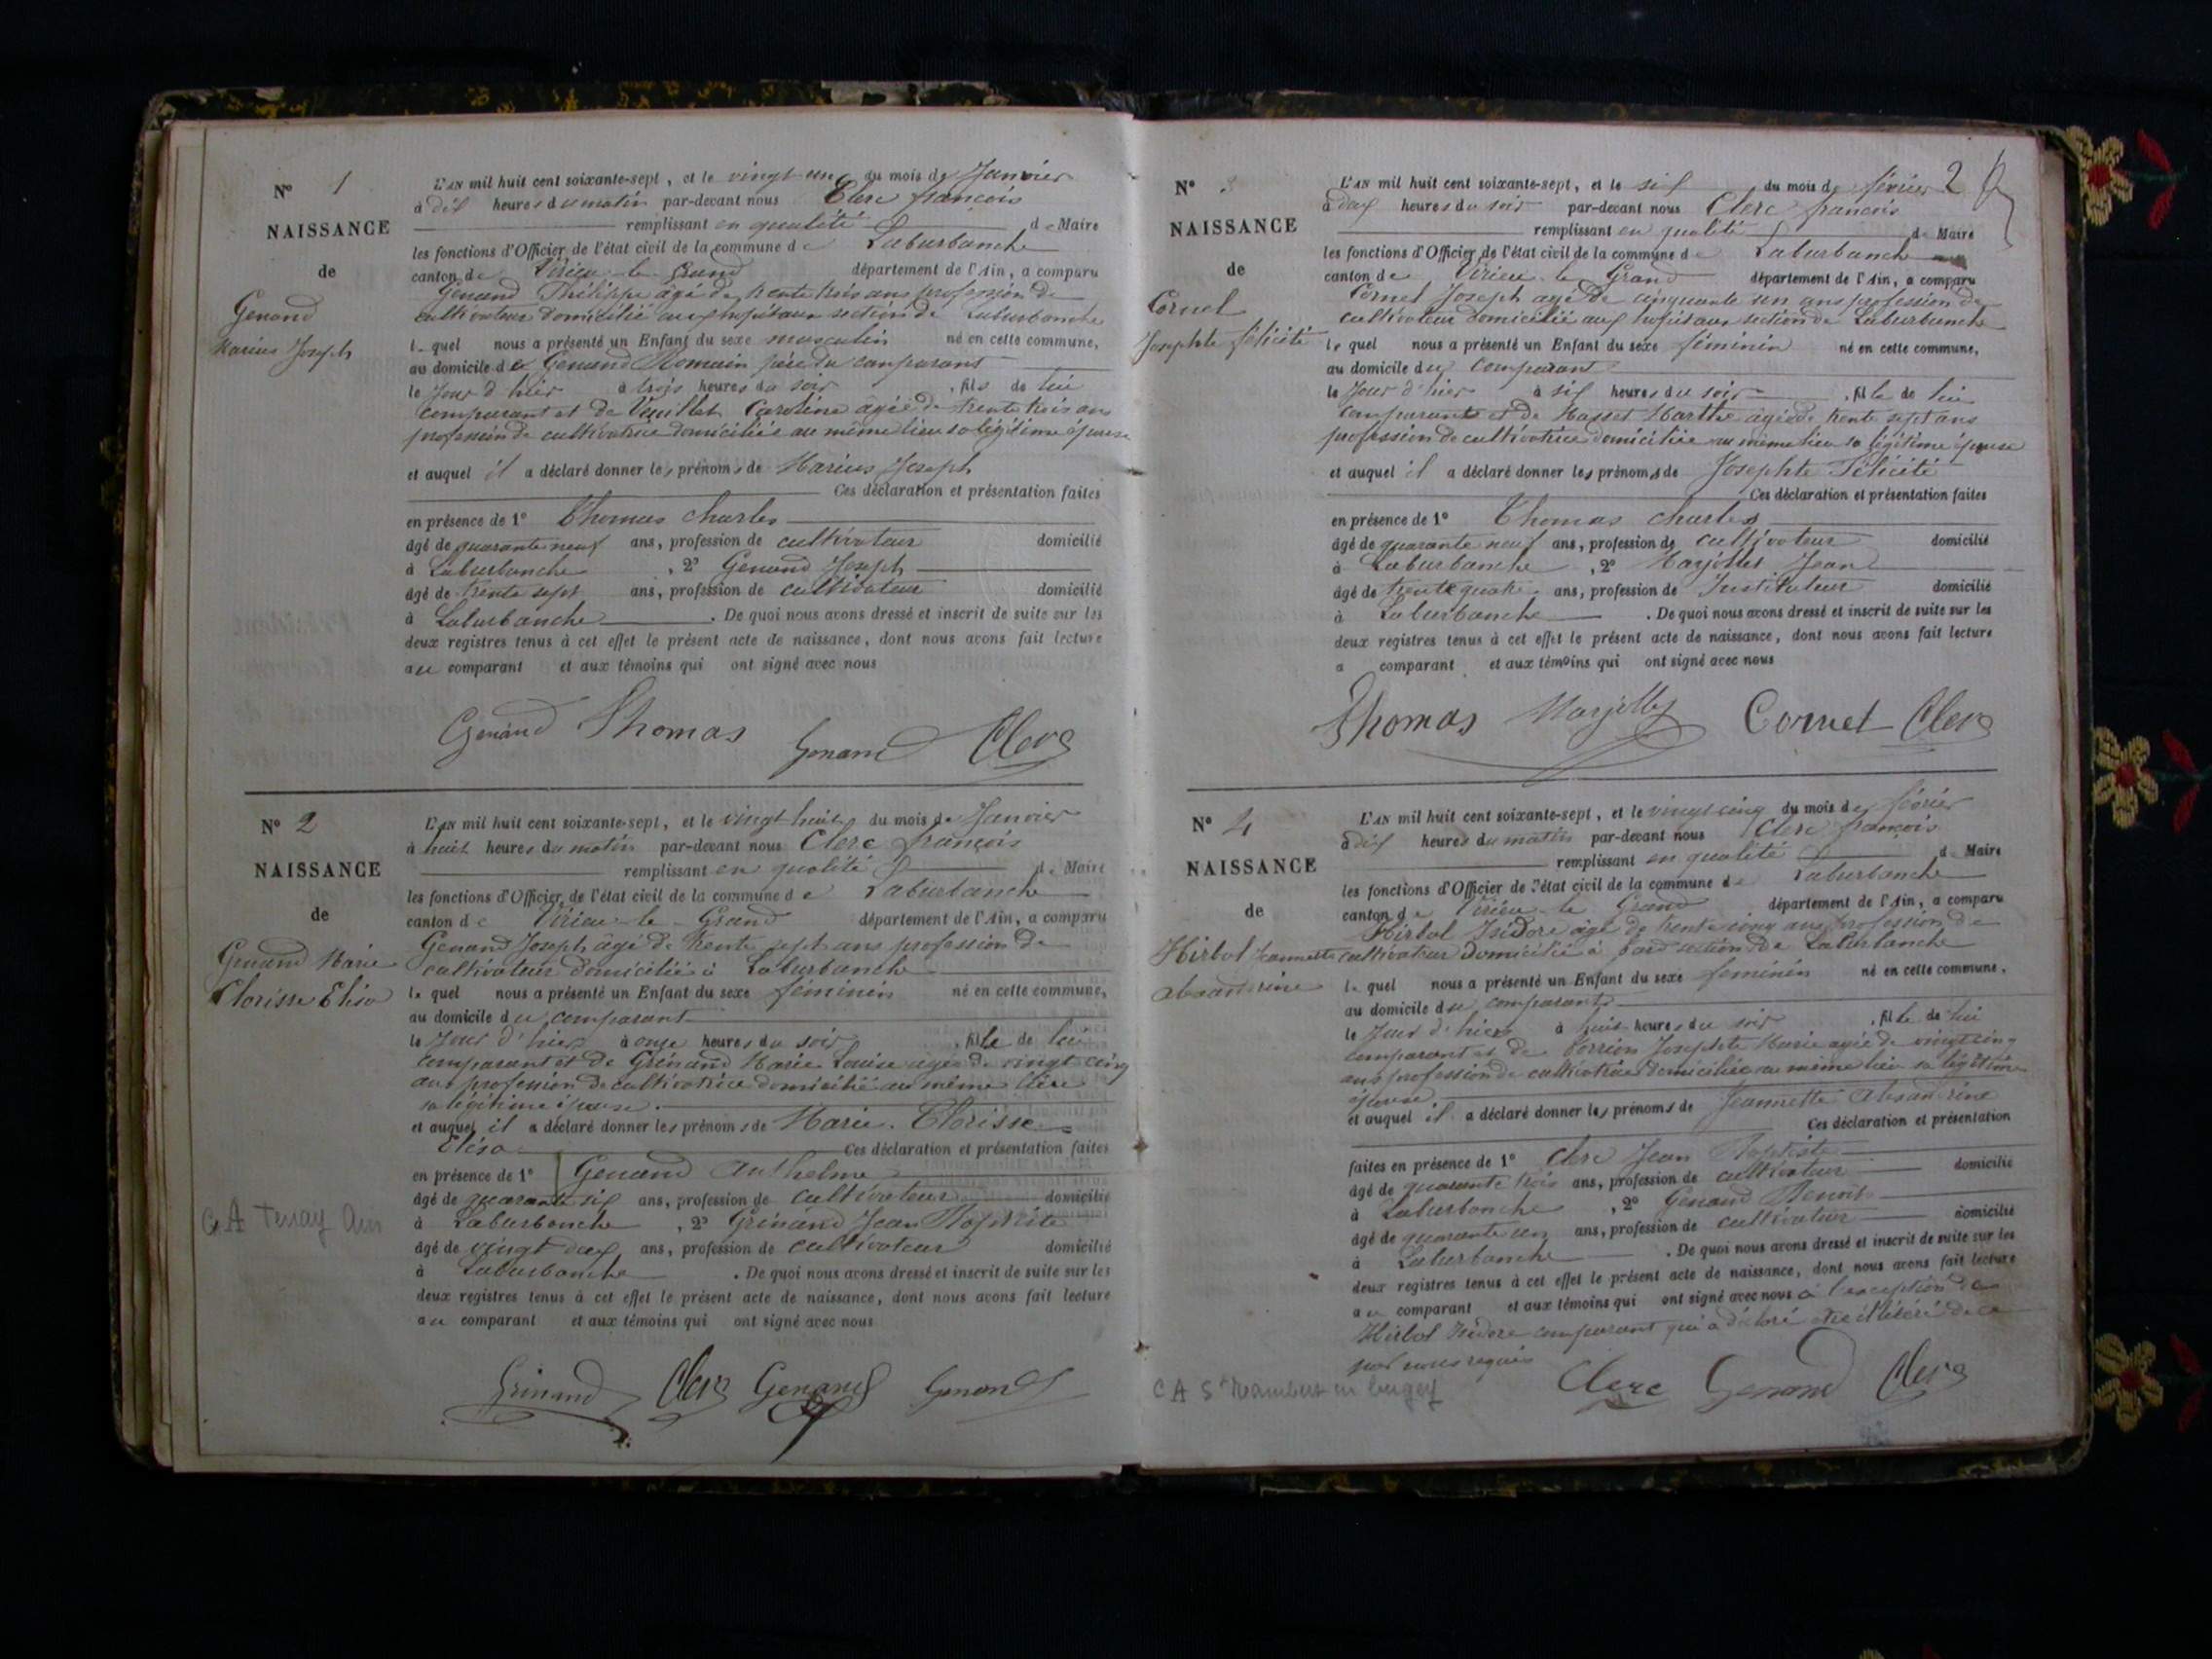 N° 1
NAISSANCE
de
Genand
Marius Joseph
L'AN mil huit cent soixante-sept, et le vingt un du mois de Janvier
à dix heures du matin par-devant nous Clerc françois
remplissant en qualité de Maire
les fonctions d'Officier de l'état civil de la commune de Laburbanche
canton de Virieu-le-Grand département de l'Ain, a comparu
Genand Philippe âgé de trente trois ans profession de
cultivateur domicilié aux hopitaux section de Laburbanche
lequel nous a présenté un Enfant du sexe masculin né en cette commune,
au domicile de Genand Romain père du comparant
le Jour d'hier à trois heures du soir, fils de lui
comparant et de Vuillet Caroline âgée de trente trois ans
profession de cultivatrice domiciliée au même lieu sa légitime épouse
et auquel il a déclaré donner les prénoms de Marius Joseph
Ces déclaration et présentation faites
en présence de 1° Thomas Charles
âgé de quarante neuf ans, profession de cultivateur domicilié
à Laburbanche, 2° Genand Joseph
âgé de trente sept ans, profession de cultivateur domicilié
à Laburbanche. De quoi nous avons dressé et inscrit de suite sur les
deux registres tenus à cet effet le présent acte de naissance, dont nous avons fait lecture
au comparant et aux témoins qui ont signé avec nous
Genand Thomas Genand Clerc
N° 2
NAISSANCE
de
Genand Marie
Clorisse Elisa
L'AN mil huit cent soixante-sept, et le vingt huit du mois de Janvier
à huit heures du matin par-devant nous Clerc françois
remplissant en qualité de Maire
les fonctions d'Officier de l'état civil de la commune de Laburbanche
canton de Virieu-le-Grand département de l'Ain, a comparu
Genand Joseph âgé de trente sept ans profession de
cultivateur domicilié à Laburbanche
lequel nous a présenté un Enfant du sexe féminin né en cette commune,
au domicile du comparant
le Jour d'hier à onze heures du soir, fille de lui
comparant et de Grinand Marie Louise âgée de vingt cinq
ans profession de cultivatrice domicilié au même lieu
sa légitime épouse.
et auquel il a déclaré donner les prénoms de Marie Clorisse
Elisa Ces déclaration et présentation faites
en présence de 1° Genand Anthelme
âgé de quarante six ans, profession de cultivateur domicilié
à Laburbanche, 2° Grinand Jean Baptiste
âgé de vingt deux ans, profession de cultivateur domicilié
à Laburbanche. De quoi nous avons dressé et inscrit de suite sur les
deux registres tenus à cet effet le présent acte de naissance, dont nous avons fait lecture
au comparant et aux témoins qui ont signé avec nous
C A Tenay Ain
Grinand Clerc Genand Genand
2
N° 3
NAISSANCE
de
Cornet
Josephte félicité
L'AN mil huit cent soixante-sept, et le six du mois de février
à deux heures du soir par-devant nous Clerc françois
remplissant en qualité de Maire
les fonctions d'Officier de l'état civil de la commune de Laburbanche
canton de Virieu-le Grand département de l'Ain, a comparu
Cornet Joseph âgé de cinquante un ans profession de
cultivateur domicilié aux hopitaux section de Laburbanche
lequel nous a présenté un Enfant du sexe féminin né en cette commune,
au domicile du comparant
le Jour d'hier à six heures du soir, fille de lui
comparant et de Masset Marthe âgée de trente sept ans
profession de cultivatrice domiciliée au même lieu sa légitime épouse
et auquel il a déclaré donner les prénoms de Josephte Félicité
Ces déclaration et présentation faites
en présence de 1° Thomas Charles
âgé de quarante neuf ans, profession de cultivateur domicilié
à Laburbanche, 2° Marjollet Jean
âgé de trente quatre ans, profession de Instituteur domicilié
à Laburbanche. De quoi nous avons dressé et inscrit de suite sur les
deux registres tenus à cet effet le présent acte de naissance, dont nous avons fait lecture
a comparant et aux témoins qui ont signé avec nous
Thomas Cornet Clerc
N° 4
NAISSANCE
de
Hirbol Jeannette
Alexandrine
L'AN mil huit cent soixante-sept, et le vingt cinq du mois de février
à dix heures du matin par-devant nous Clerc françois
remplissant en qualité de Maire
les fonctions d'Officier de l'état civil de la commune de Laburbanche
canton de Virieu-le Grand département de l'Ain, a comparu
Hirbol Isidore âgé de trente cinq ans profession de
cultivateur domicilié à section de Laburbanche
lequel nous a présenté un Enfant du sexe féminin né en cette commune,
au domicile du comparant
le Jour d'hier à huit heures du soir, fille de lui
comparant et de Josephte Marie âgée de vingt cinq
ans profession de cultivatrice domiciliée au même lieu sa légitime
épouse
et auquel il a déclaré donner les prénoms de Jeannette
Ces déclaration et présentation
faites en présence de 1° Clerc Jean Baptiste
âgé de quarante trois ans, profession de cultivateur domicilié
à Laburbanche, 2° Genand Benoit
âgé de quarante un ans, profession de cultivateur domicilié
à Laburbanche. De quoi nous avons dressé et inscrit de suite sur les
deux registres tenus à cet effet le présent acte de naissance, dont nous avons fait lecture
au comparant et aux témoins qui ont signé avec nous à l'exception de
Hirbol Isidore comparant qui a déclaré être illiséré de ce
par nous requis
C A St Rambert en bugey
Clerc Genand Clerc